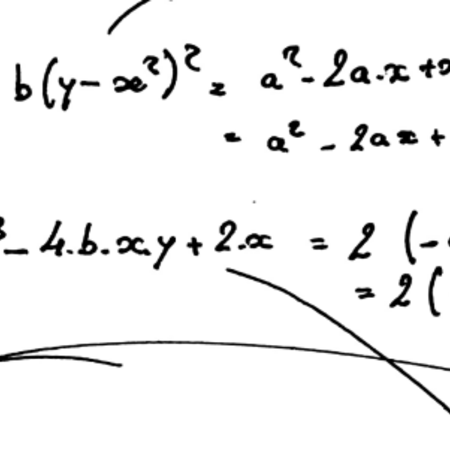 b(y-x²)² = a² - 2a.x +
= a² - 2ax +
- 4.b.x.y + 2.x = 2 (-
= 2 (